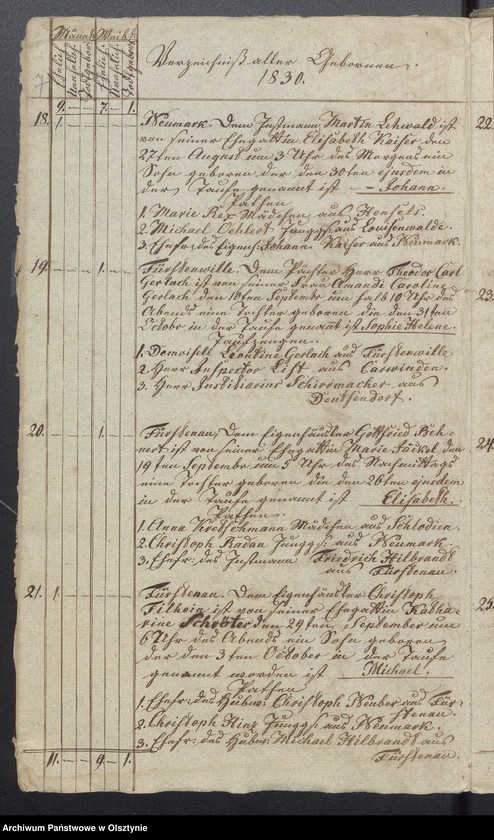 Männl. Weibl.
Verzeichniß aller Gebornen.
1830.
9. — 7. — 1.
18. 1. Neumark. Dem Instmann Martin Lehwald ist
von seiner Ehegattin Elisabeth Kaiser den
27ten August um 3 Uhr des Morgens ein
Sohn geboren der den 30ten ejusdem in
der Taufe genannt ist — Johann.
Pathen
1. Marie Rex Mädchen aus Hensels.
2. Michael Oehlert Junggs: aus Louisenwalde.
3. Ehefr: des Eigenk: Johann Kaiser aus Neumark.
19. 1. Fürstenwille. Dem Pächter Herr Theodor Carl
Gerlach ist von seiner Frau Amandi Caroline
Gerlach den 10ten Septembr um halb 10 Uhr des
Abends eine Tochter geboren die den 31ten
Octobr in der Taufe genannt ist Sophie Helene.
Taufzeugen.
1. Demoisell Leontine Gerlach aus Fürstenwille
2. Herr Inspector List aus Carwinden.
3. Herr Justitiarius Schirrmacher aus
Deutschendorf.
20. 1. Fürstenau, Dem Eigenkäthner Gottfried
ist von seiner Ehegattin Marie Jäckel den
19ten Septembr um 5 Uhr des Nachmittags
eine Tochter geboren die den 26ten ejusdem
in der Taufe genannt ist Elisabeth.
Pathen.
1. Anna Kretschmann Mädchen aus Schlodien.
2. Christoph Radau Junggs: aus Neumark.
3. Ehefr: des Instmann Friedrich Hilbrandt
aus Fürstenau.
21. 1. Fürstenau. Dem Eigenkäthner Christoph
ist von seiner Ehegattin Katha-
rine Schröter den 29ten September um
6 Uhr des Abends ein Sohn geboren
der den 3ten October in der Taufe
genannt worden ist Michael.
Pathen
1. Ehefr: des Hubn: Christoph Neuber aus Für-
stenau.
2. Christoph Hinz Junggs: aus Neumark.
3. Ehefr: des Hubn: Michael Hilbrandt aus
Fürstenau.
11. — 9. — 1.
22.
23.
24.
25.
Archiwum Państwowe w Olsztynie